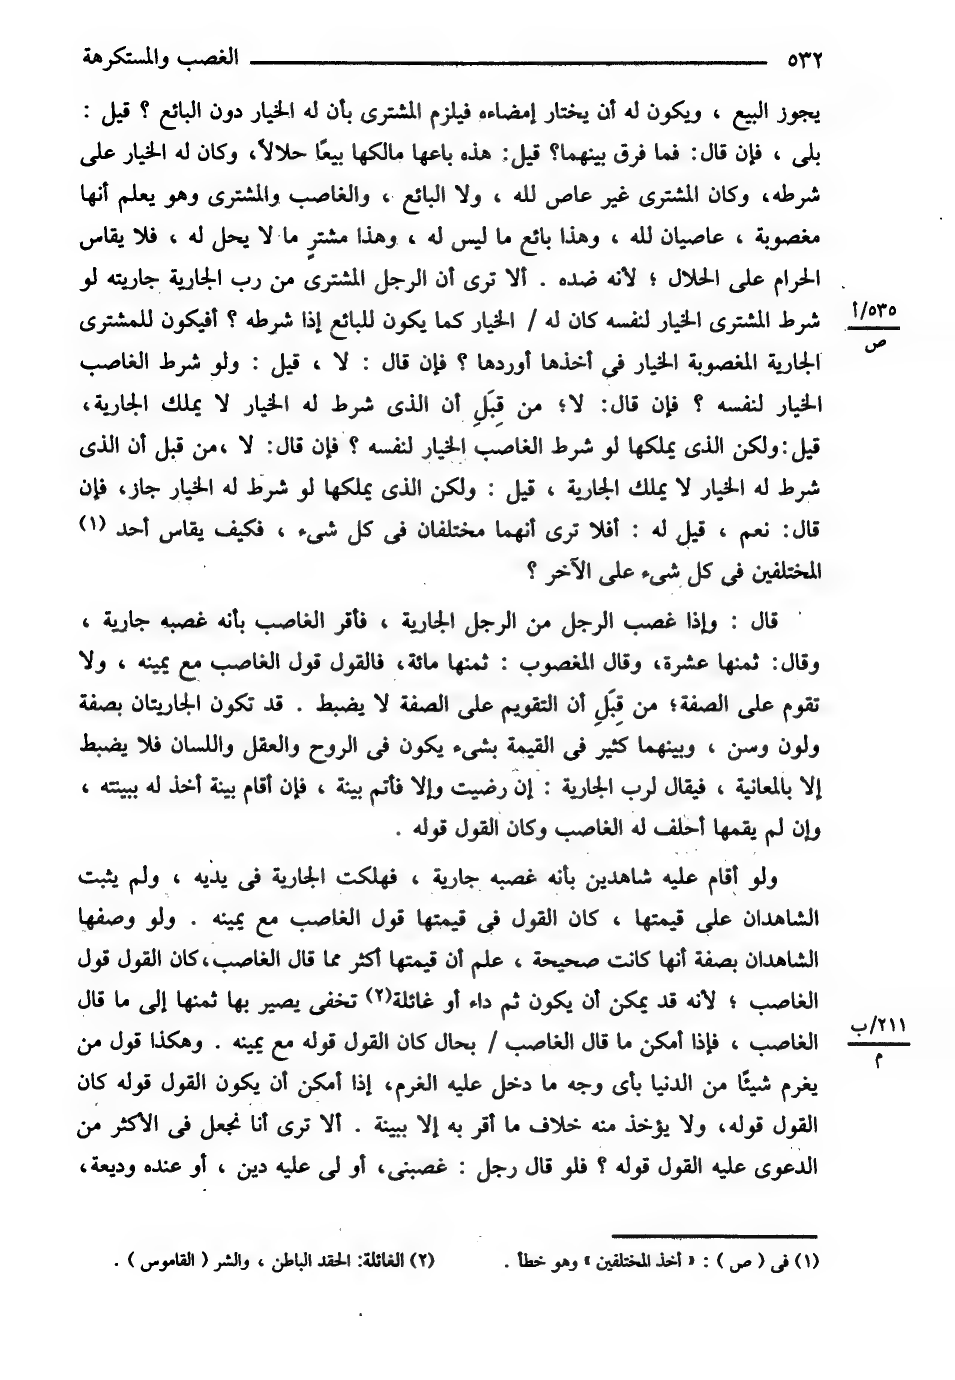 ٥٣٢ ــــــــــ الغصب والمستكرهة
يجوز البيع ، ويكون له أن يختار إمضاءه فيلزم المشترى بأن له الخيار دون البائع ؟ قيل :
بلى ، فإن قال: فما فرق بينهما؟ قيل: هذه باعها مالكها بيعًا حلالاً، وكان له الخيار على
شرطه، وكان المشترى غير عاص لله ، ولا البائع ، والغاصب والمشترى وهو يعلم أنها
مغصوبة ، عاصيان لله ، وهذا بائع ما ليس له ، وهذا مشترٍ ما لا يحل له ، فلا يقاس
الحرام على الحلال ؛ لأنه ضده . ألا ترى أن الرجل المشترى من رب الجارية جاريته لو
شرط المشترى الخيار لنفسه كان له / الخيار كما يكون للبائع إذا شرطه ؟ أفيكون للمشترى
٥٣٥/أ
ص
الجارية المغصوبة الخيار في أخذها أوردها ؟ فإن قال : لا ، قيل : ولو شرط الغاصب
الخيار لنفسه ؟ فإن قال: لا؛ من قِبَلِ أن الذى شرط له الخيار لا يملك الجارية،
قيل:ولكن الذى يملكها لو شرط الغاصب الخيار لنفسه ؟ فإن قال: لا ،من قبل أن الذى
شرط له الخيار لا يملك الجارية ، قيل : ولكن الذى يملكها لو شرط له الخيار جاز، فإن
قال: نعم ، قيل له : أفلا ترى أنهما مختلفان فى كل شىء ، فكيف يقاس أحد (١)
المختلفين فى كل شىء على الآخر ؟
قال : وإذا غصب الرجل من الرجل الجارية ، فأقر الغاصب بأنه غصبه جارية ،
وقال: ثمنها عشرة، وقال المغصوب : ثمنها مائة، فالقول قول الغاصب مع يمينه ، ولا
تقوم على الصفة؛ من قِبَلِ أن التقويم على الصفة لا يضبط . قد تكون الجاريتان بصفة
ولون وسن ، وبينهما كثير فى القيمة بشىء يكون فى الروح والعقل واللسان فلا يضبط
إلا بالمعانية ، فيقال لرب الجارية : إن رضيت وإلا فأتم بينة ، فإن أقام بينة أخذ له ببينته ،
وإن لم يقمها أحلف له الغاصب وكان القول قوله .
ولو أقام عليه شاهدين بأنه غصبه جارية ، فهلكت الجارية فى يديه ، ولم يثبت
الشاهدان على قيمتها ، كان القول فى قيمتها قول الغاصب مع يمينه . ولو وصفها
الشاهدان بصفة أنها كانت صحيحة ، علم أن قيمتها أكثر مما قال الغاصب،كان القول قول
الغاصب ؛ لأنه قد يمكن أن يكون ثم داء أو غائلة(٢) تخفى يصير بها ثمنها إلى ما قال
الغاصب ، فإذا أمكن ما قال الغاصب / بحال كان القول قوله مع يمينه . وهكذا قول من
٢١١/ب
م
يغرم شيئًا من الدنيا بأى وجه ما دخل عليه الغرم، إذا أمكن أن يكون القول قوله كان
القول قوله، ولا يؤخذ منه خلاف ما أقر به إلا ببينة . ألا ترى أنا نجعل فى الأكثر من
الدعوى عليه القول قوله ؟ فلو قال رجل : غصبنى، أو لى عليه دين ، أو عنده وديعة،
(١) فى ( ص ) : « أخذ المختلفين » وهو خطأ . (٢) الغائلة: الحقد الباطن ، والشر ( القاموس ) .